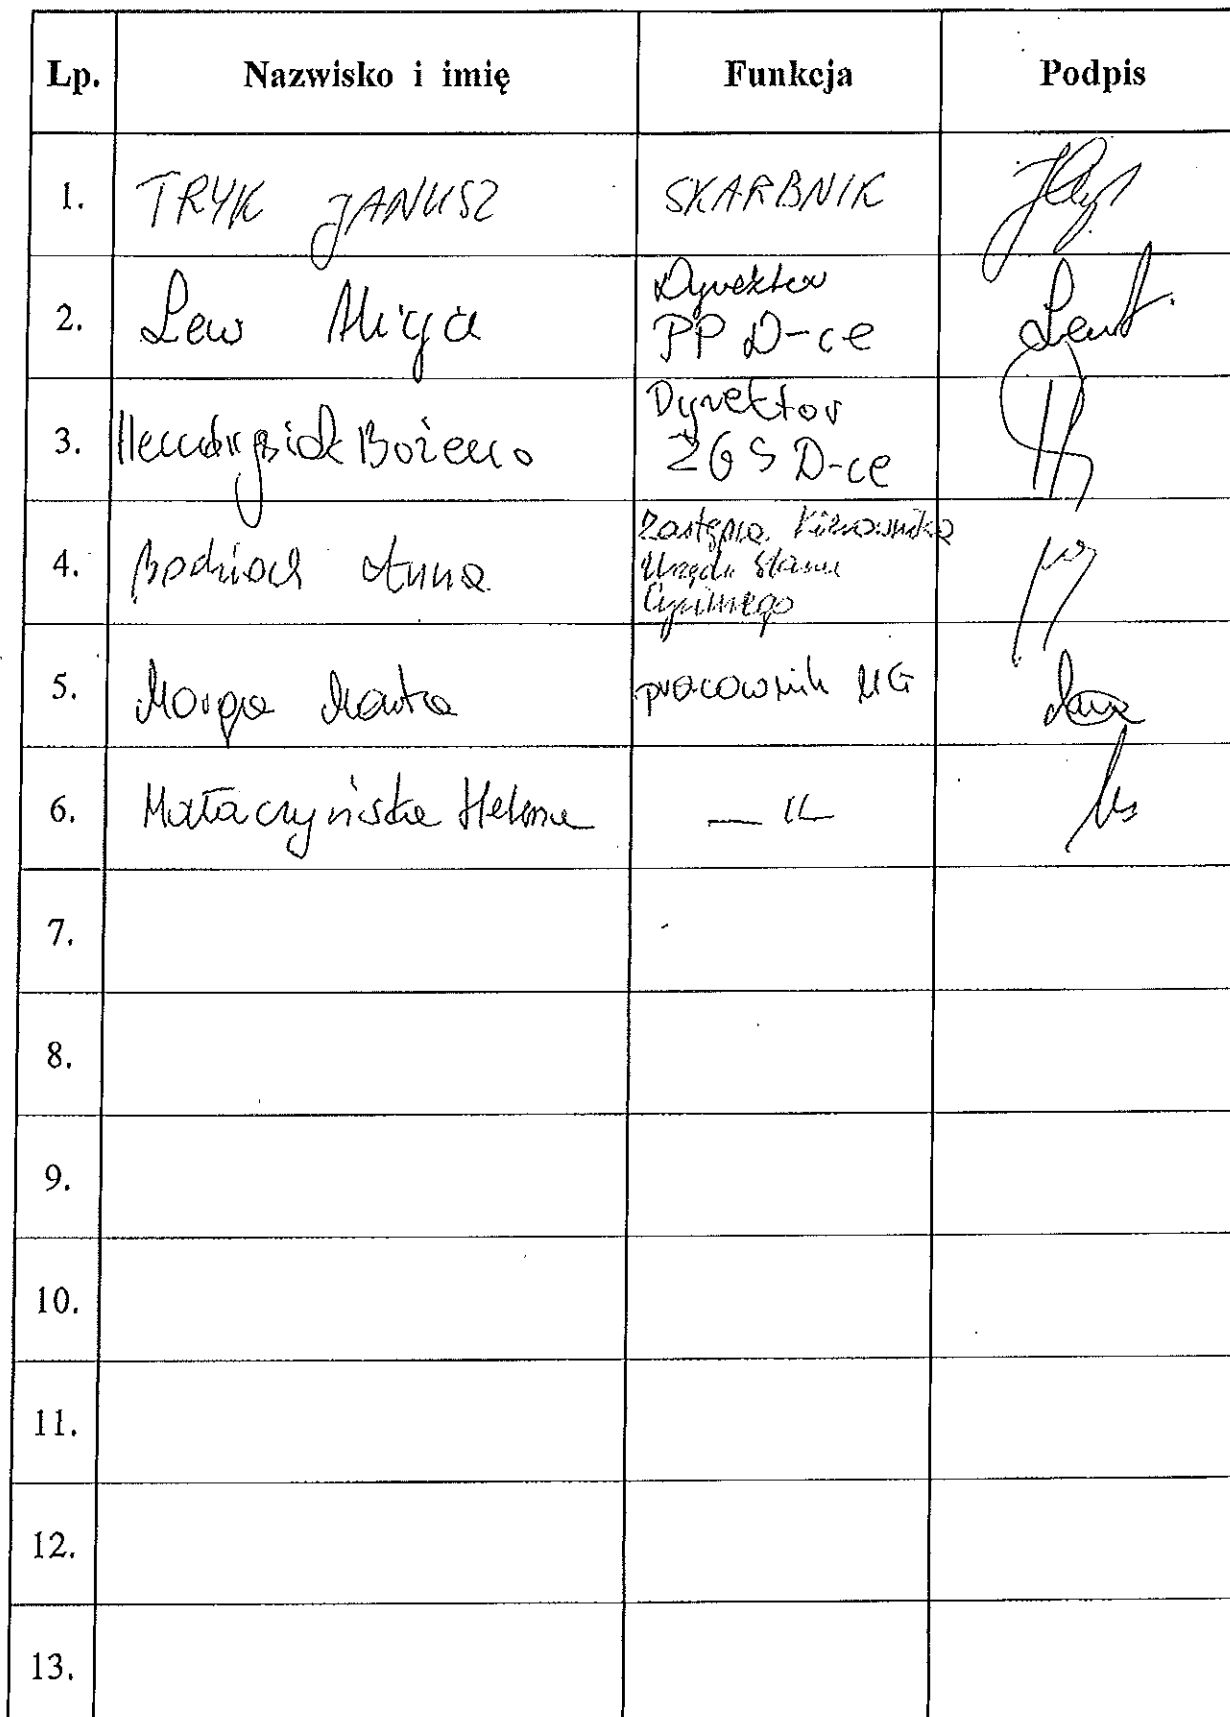 Lp. Nazwisko i imię Funkcja Podpis
1. TRYK JANUSZ SKARBNIK
2. Lew Alicja Dyrektor
PP D-ce
3. Hendrysiak Bożena Dyrektor
ZGS D-ce
4. Bodzioch Anna Zastępca Kierownika
Urzędu Stanu
Cywilnego
5. Marta pracownik UG
6. Mataczyńska Helena — 〃 —
7.
8.
9.
10.
11.
12.
13.